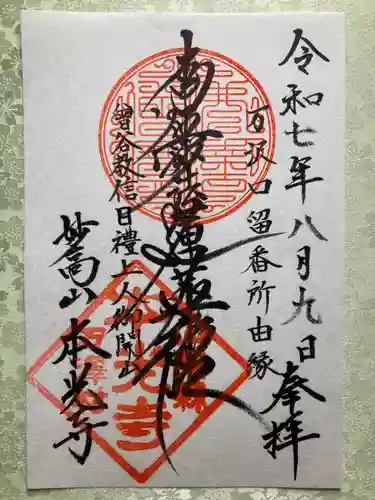 令和七年八月九日
奉拝
百沢口留番所由縁
南無妙法蓮華経
曽谷教信日禮上人御開山
妙高山 本光寺